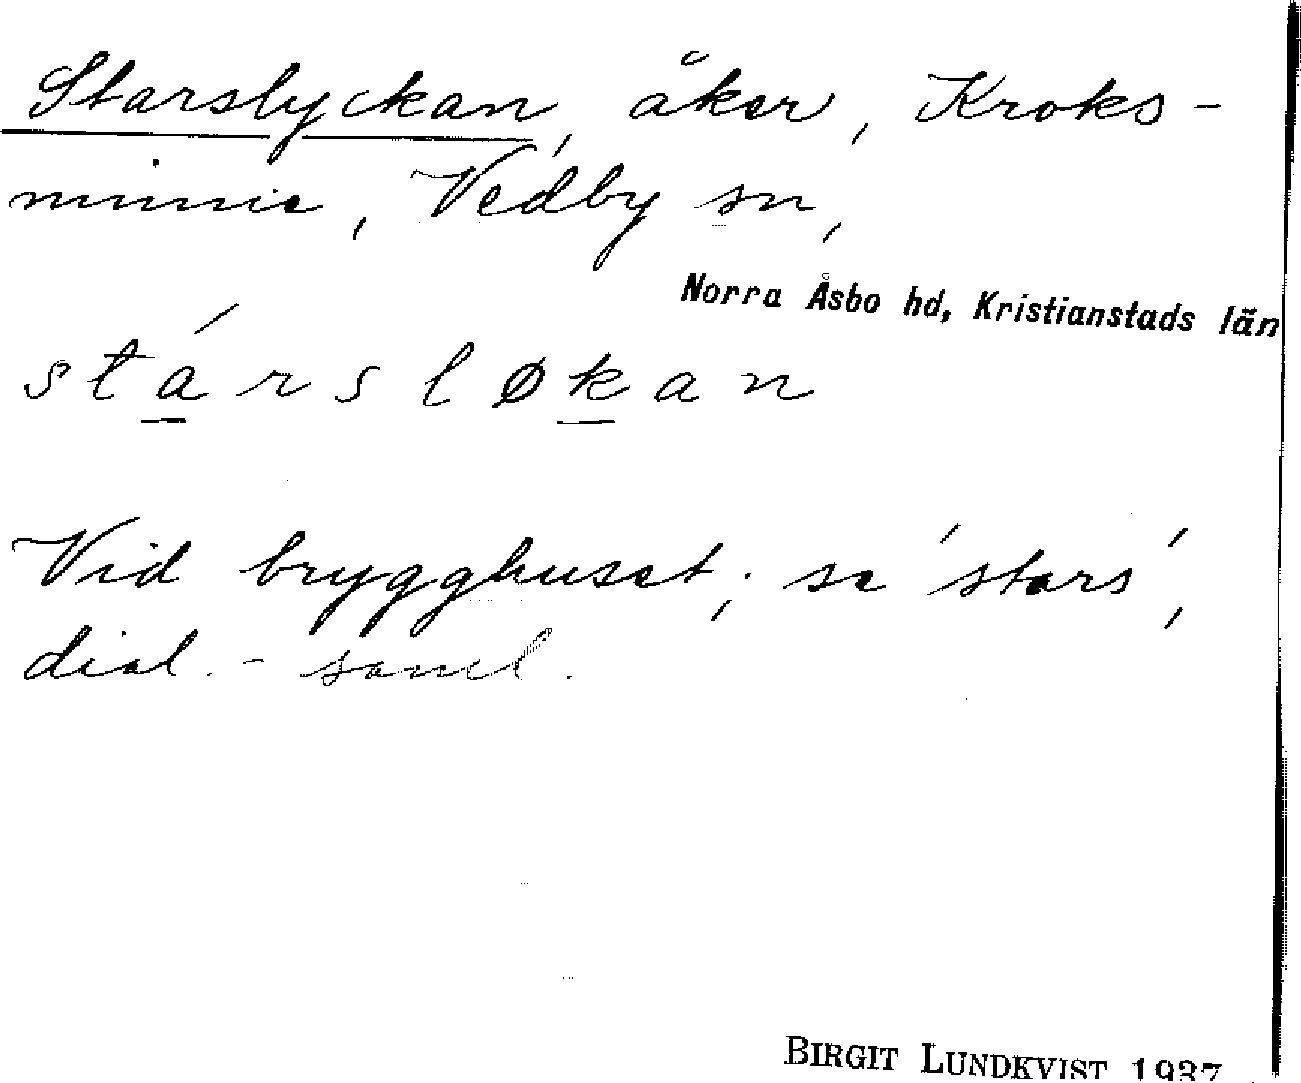 Starslyckan, åker, Kroks-
minnie, Vedby sn,
Norra Åsbo hd, Kristianstads län
stársløkan
Vid brygghuset; se 'stars',
dial.-saml.
BIRGIT LUNDKVIST 1937